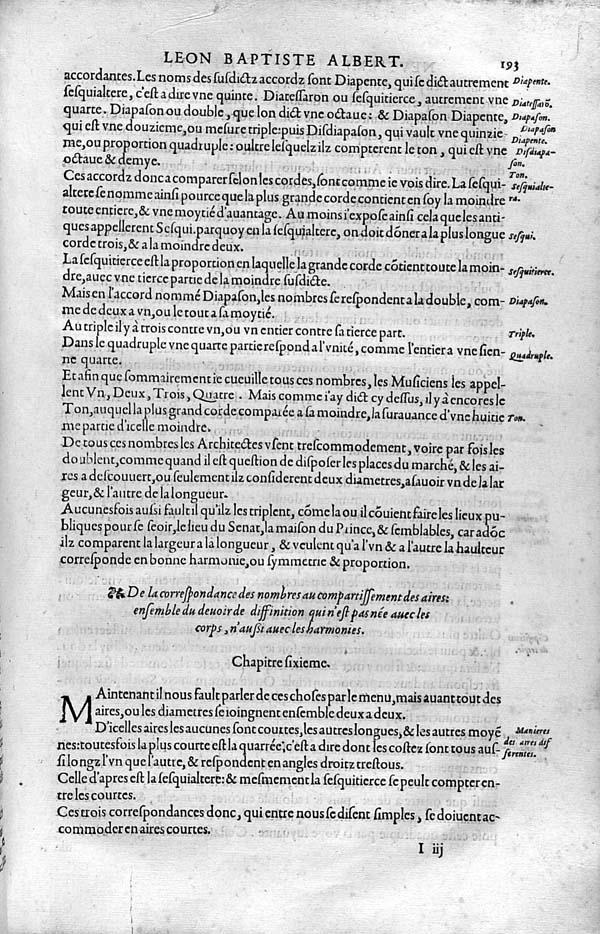 LEON BAPTISTE ALBERT. 193
accordantes. Les noms des susdictz accordz sont Diapente, qui se dict autrement Diapente.
sesquialtere, c'est a dire vne quinte. Diatessaron ou sesquitierce, autrement vne Diatessarō.
quarte. Diapason ou double, que lon dict vne octaue: & Diapason Diapente, Diapason.
qui est vne douzieme, ou mesure triple: puis Disdiapason, qui vault vne quinzie- Diapason
me, ou proportion quadruple: oultre lesquelz ilz compterent le ton, qui est vne Diapente.
octaue & demye. Disdiapa-
son.
Ces accordz donc a comparer selon les cordes, sont comme ie vois dire. La sesqui- Ton.
altere se nomme ainsi pource que la plus grande corde contient en soy la moindre Sesquialte-
toute entiere, & vne moytié d'auantage. Au moins i'expose ainsi cela que les anti- ra.
ques appellerent Sesqui. parquoy en la sesquialtere, on doit dōner a la plus longue Sesqui.
corde trois, & a la moindre deux.
La sesquitierce est la proportion en laquelle la grande corde cōtient toute la moin- Sesquitierce.
dre, auec vne tierce partie de la moindre susdicte.
Mais en l'accord nommé Diapason, les nombres se respondent a la double, com- Diapason.
me de deux a vn, ou le tout a sa moytié.
Au triple il y à trois contre vn, ou vn entier contre sa tierce part. Triple.
Dans le quadruple vne quarte partie respond a l'vnité, comme l'entier a vne sien- Quadruple.
ne quarte.
Et afin que sommairement ie cueuille tous ces nombres, les Musiciens les appel-
lent Vn, Deux, Trois, Quatre. Mais comme i'ay dict cy dessus, il y à encores le
Ton, auquel la plus grand corde comparée a sa moindre, la surauance d'vne huitie Ton.
me partie d'icelle moindre.
De tous ces nombres les Architectes vsent trescommodement, voire par fois les
doublent, comme quand il est question de disposer les places du marché, & les ai-
res a descouuert, ou seulement ilz considerent deux diametres, asauoir vn de la lar
geur, & l'autre de la longueur.
Aucunesfois aussi fault il qu'ilz les triplent, cōme la ou il cōuient faire les lieux pu-
bliques pour se seoir, le lieu du Senat, la maison du Prince, & semblables, car adōc
ilz comparent la largeur a la longueur, & veulent qu'a l'vn & a l'autre la haulteur
corresponde en bonne harmonie, ou symmetrie & proportion.
De la correspondance des nombres au compartissement des aires:
ensemble du deuoir de diffinition qui n'est pas née auec les
corps, n'aussi auec les harmonies.
Chapitre sixieme.
MAintenant il nous fault parler de ces choses par le menu, mais auant tout des
aires, ou les diametres se ioingnent ensemble deux a deux.
D'icelles aires les aucunes sont courtes, les autres longues, & les autres moyē Manieres
nes: toutesfois la plus courte est la quarrée, c'est a dire dont les costez sont tous aus- des aires dif
si longz l'vn que l'autre, & respondent en angles droitz trestous. ferentes.
Celle d'apres est la sesquialtere: & mesmement la sesquitierce se peult compter en-
tre les courtes.
Ces trois correspondances donc, qui entre nous se disent simples, se doiuent ac-
commoder en aires courtes.
I iij